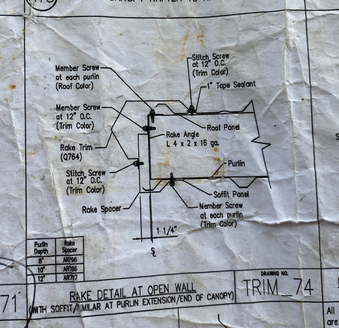 CANOPY RAFTER TO
Stitch Screw
at 12" O.C.
(Trim Color)
Member Screw
at each purlin
(Roof Color)
1" Tape Sealant
Member Screw
at 12" O.C.
(Trim Color)
Roof Panel
Rake Angle
L 4 x 2 x 16 ga.
Rake Trim
(Q764)
Purlin
Stitch Screw
at 12" O.C.
(Trim Color)
Soffit Panel
Rake Spacer
Member Screw
at each purlin
(Trim Color)
1 1/4"
Purlin Depth
Rake Spacer
8"
10"
12"
DRAWING NO.
RAKE DETAIL AT OPEN WALL
TRIM_74
71
(WITH SOFFIT/SIMILAR AT PURLIN EXTENSION/END OF CANOPY)
All
are